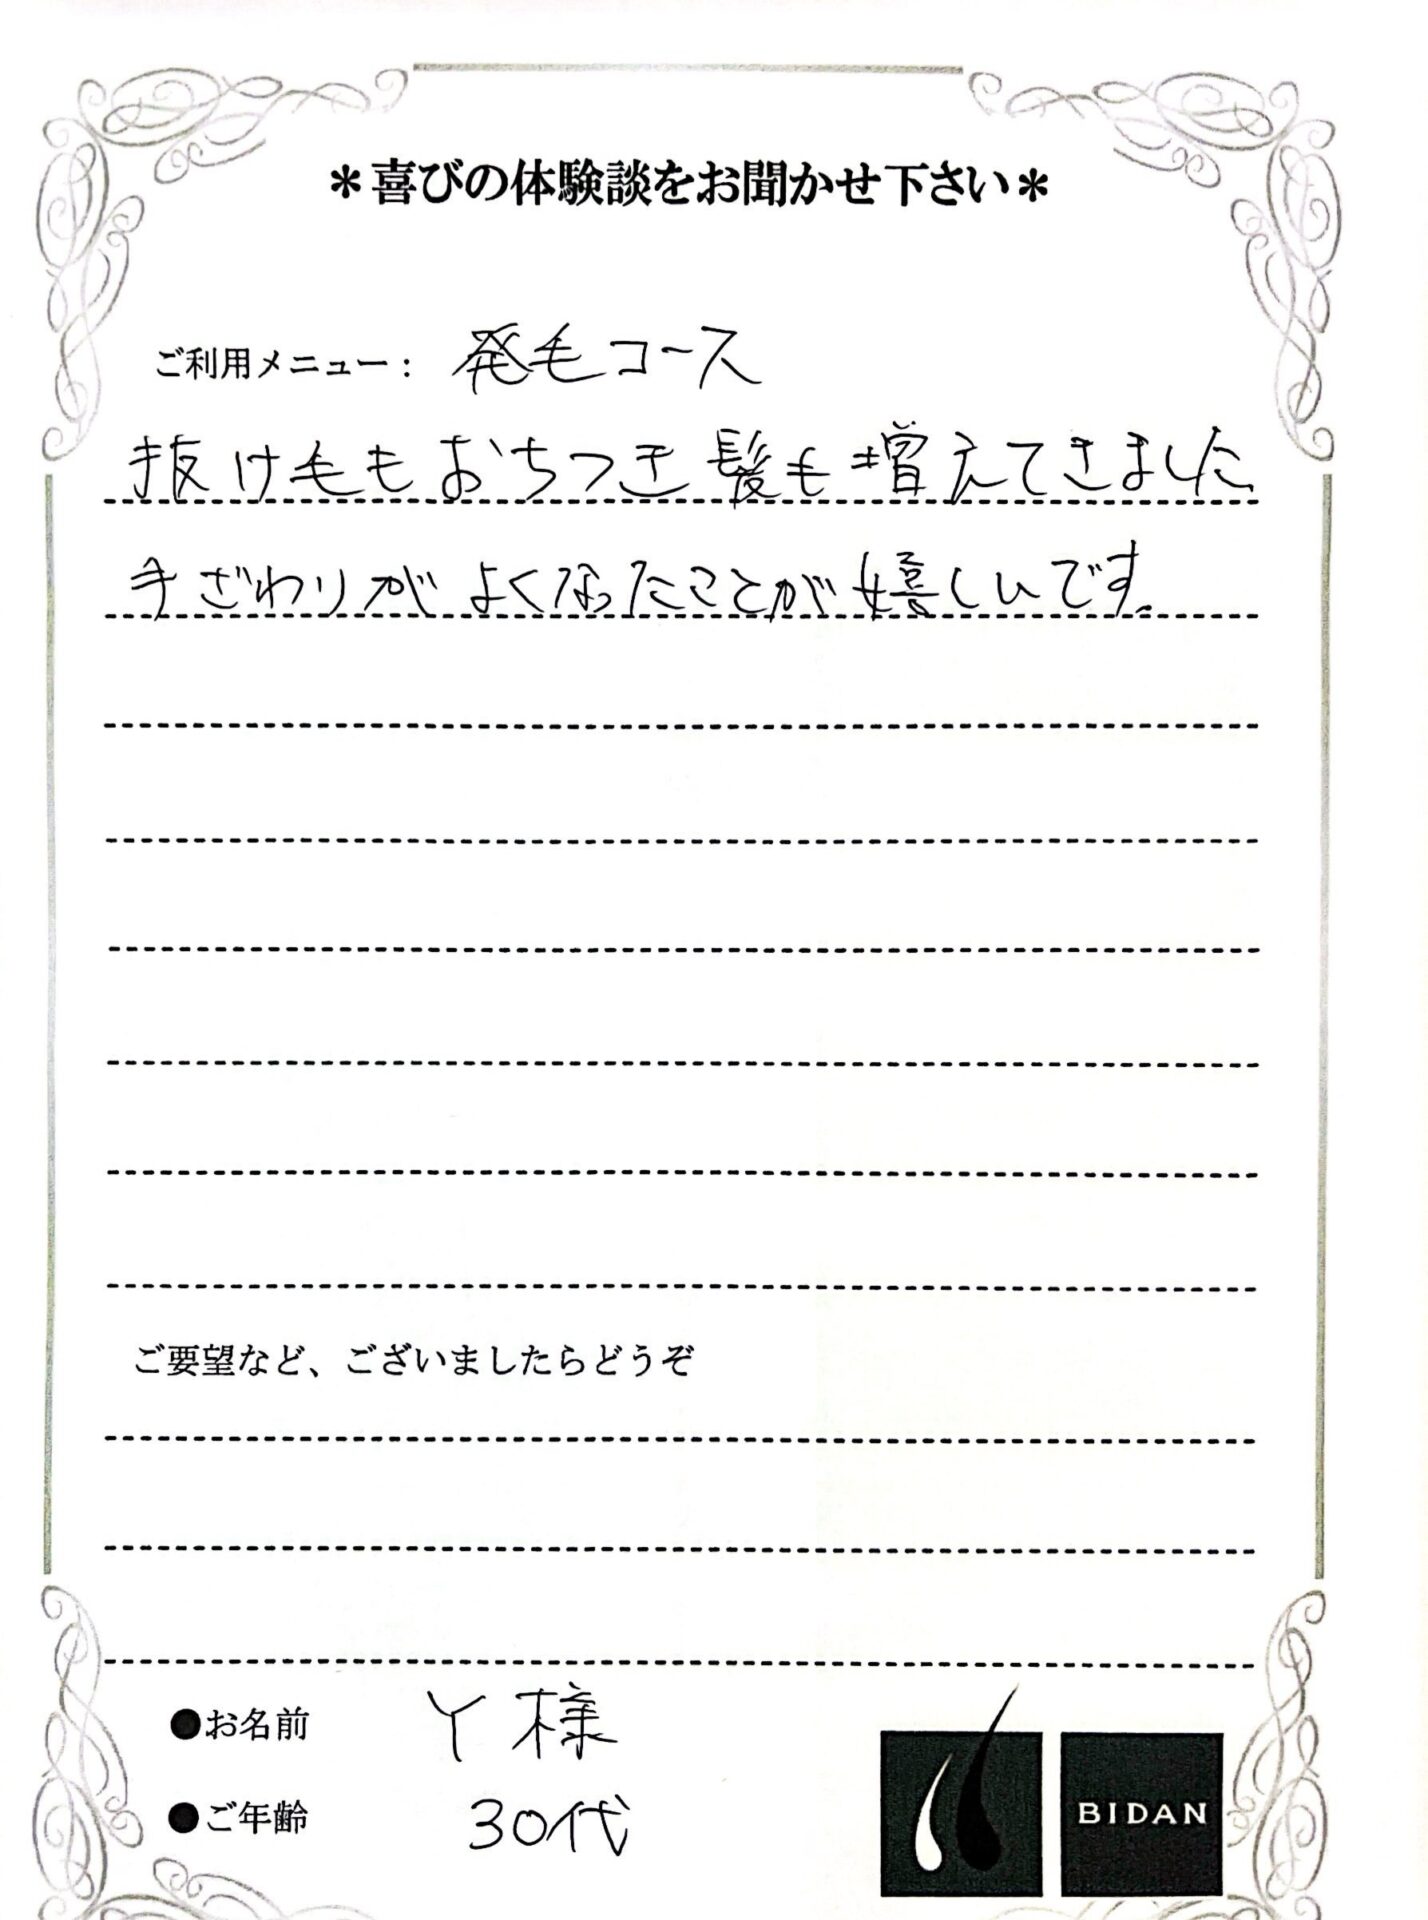 ＊喜びの体験談をお聞かせ下さい＊
ご利用メニュー： 発毛コース
抜け毛もおちつき髪も増えてきました
手ざわりがよくなったことが嬉しいです。
ご要望など、ございましたらどうぞ
●お名前 Y様
●ご年齢 30代
BIDAN